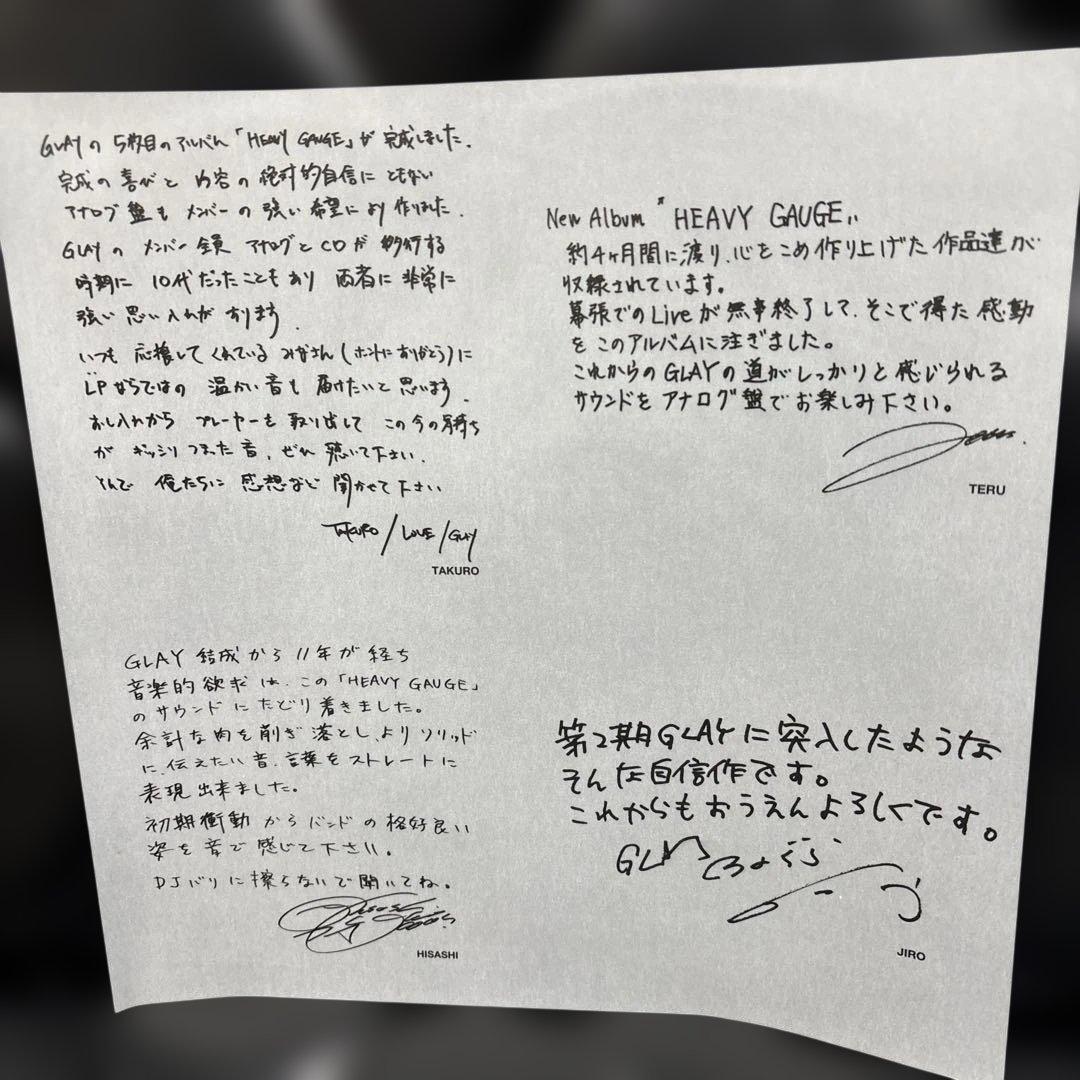 GLAYの 5枚目のアルバム「HEAVY GAUGE」が 完成しました.
完成の喜びと 内容の絶対的自信に ともない
アナログ盤も メンバーの強い希望により作りました.
GLAYの メンバー全員 アナログとCDが 移行する
時期に 10代だったこともあり 両者に非常に
強い思い入れがあります.
いつも 応援してくれている みなさん(ホントにありがとう)に
LPならではの 温かい音も 届けたいと思います.
おし入れから プレーヤーを取り出して この今の気持ち
が ギッシリつまった音, ぜひ 聴いて下さい.
そんで 俺たちに 感想など 聞かせて下さい
TAKURO/LOVE/GLAY
TAKURO
New Album 〝HEAVY GAUGE〟
約4ヶ月間に渡り、心をこめ作り上げた作品達が
収録されています。
幕張でのLiveが無事終了して、そこで得た感動
をこのアルバムに注ぎました。
これからのGLAYの道がしっかりと感じられる
サウンドをアナログ盤でお楽しみ下さい。
TERU
GLAY 結成から 11年が経ち
音楽的欲求は、この「HEAVY GAUGE」
のサウンドにたどり着きました。
余計な肉を削ぎ落とし、よりソリッド
に、伝えたい音、言葉をストレートに
表現出来ました。
初期衝動からバンドの格好良い
姿を音で感じて下さい。
DJバリに擦らないで聞いてね。
HISASHI
第2期GLAYに突入したような
そんな自信作です。
これからもおうえんよろしくです。
JIRO